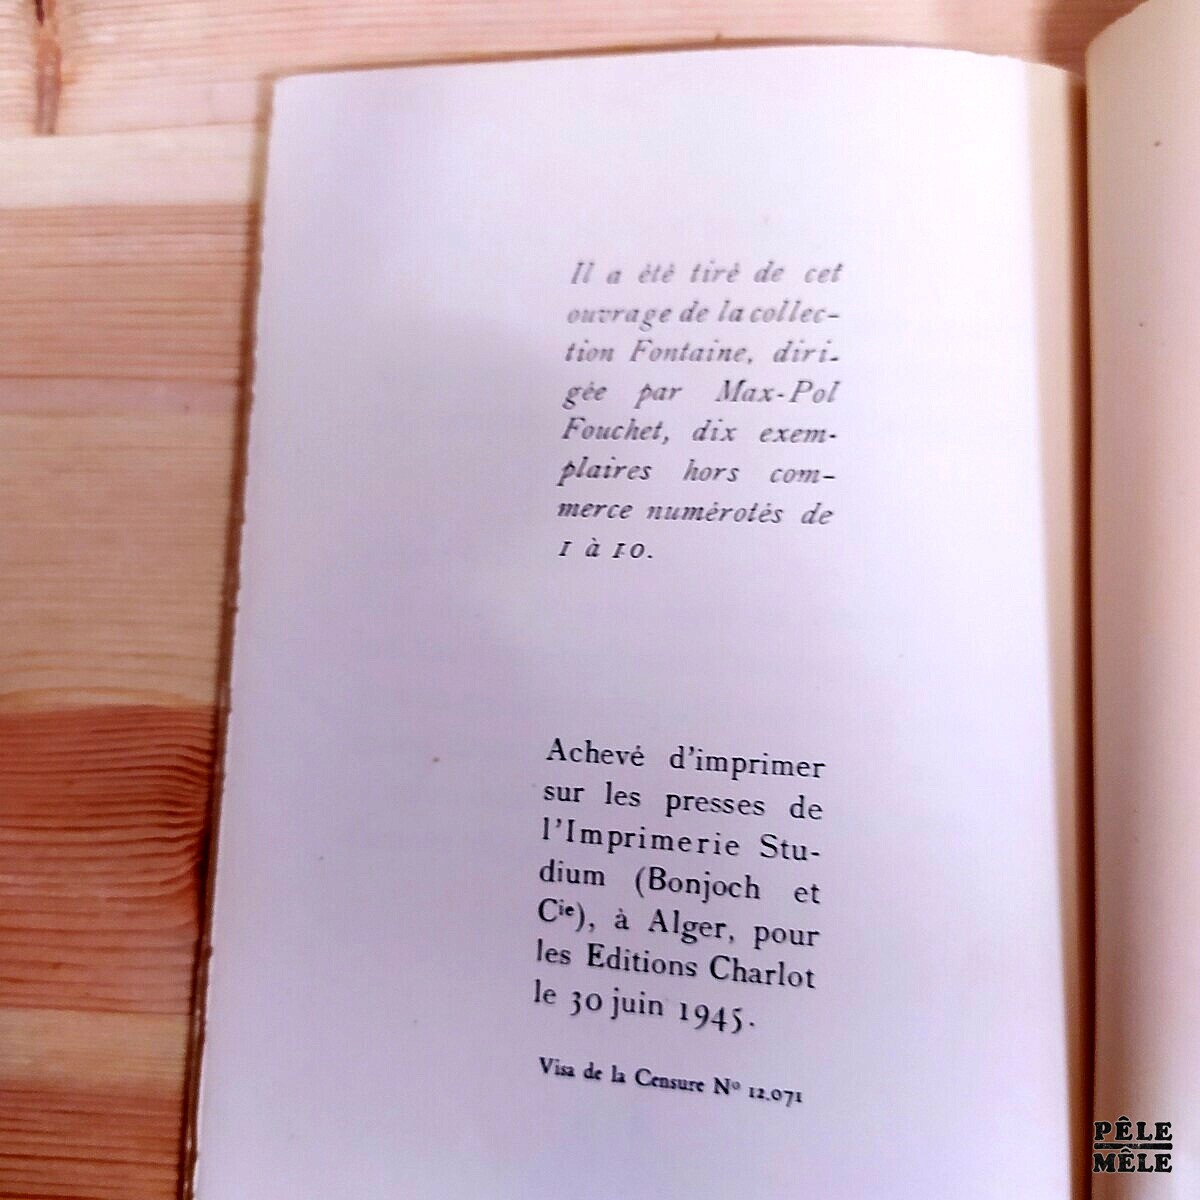 Il a été tiré de cet
ouvrage de la collec-
tion Fontaine, diri-
gée par Max-Pol
Fouchet, dix exem-
plaires hors com-
merce numérotés de
1 à 10.
Achevé d'imprimer
sur les presses de
l'Imprimerie Stu-
dium (Bonjoch et
Cie), à Alger, pour
les Editions Charlot
le 30 juin 1945.
Visa de la Censure Nº 12.071
PÊLE
MÊLE